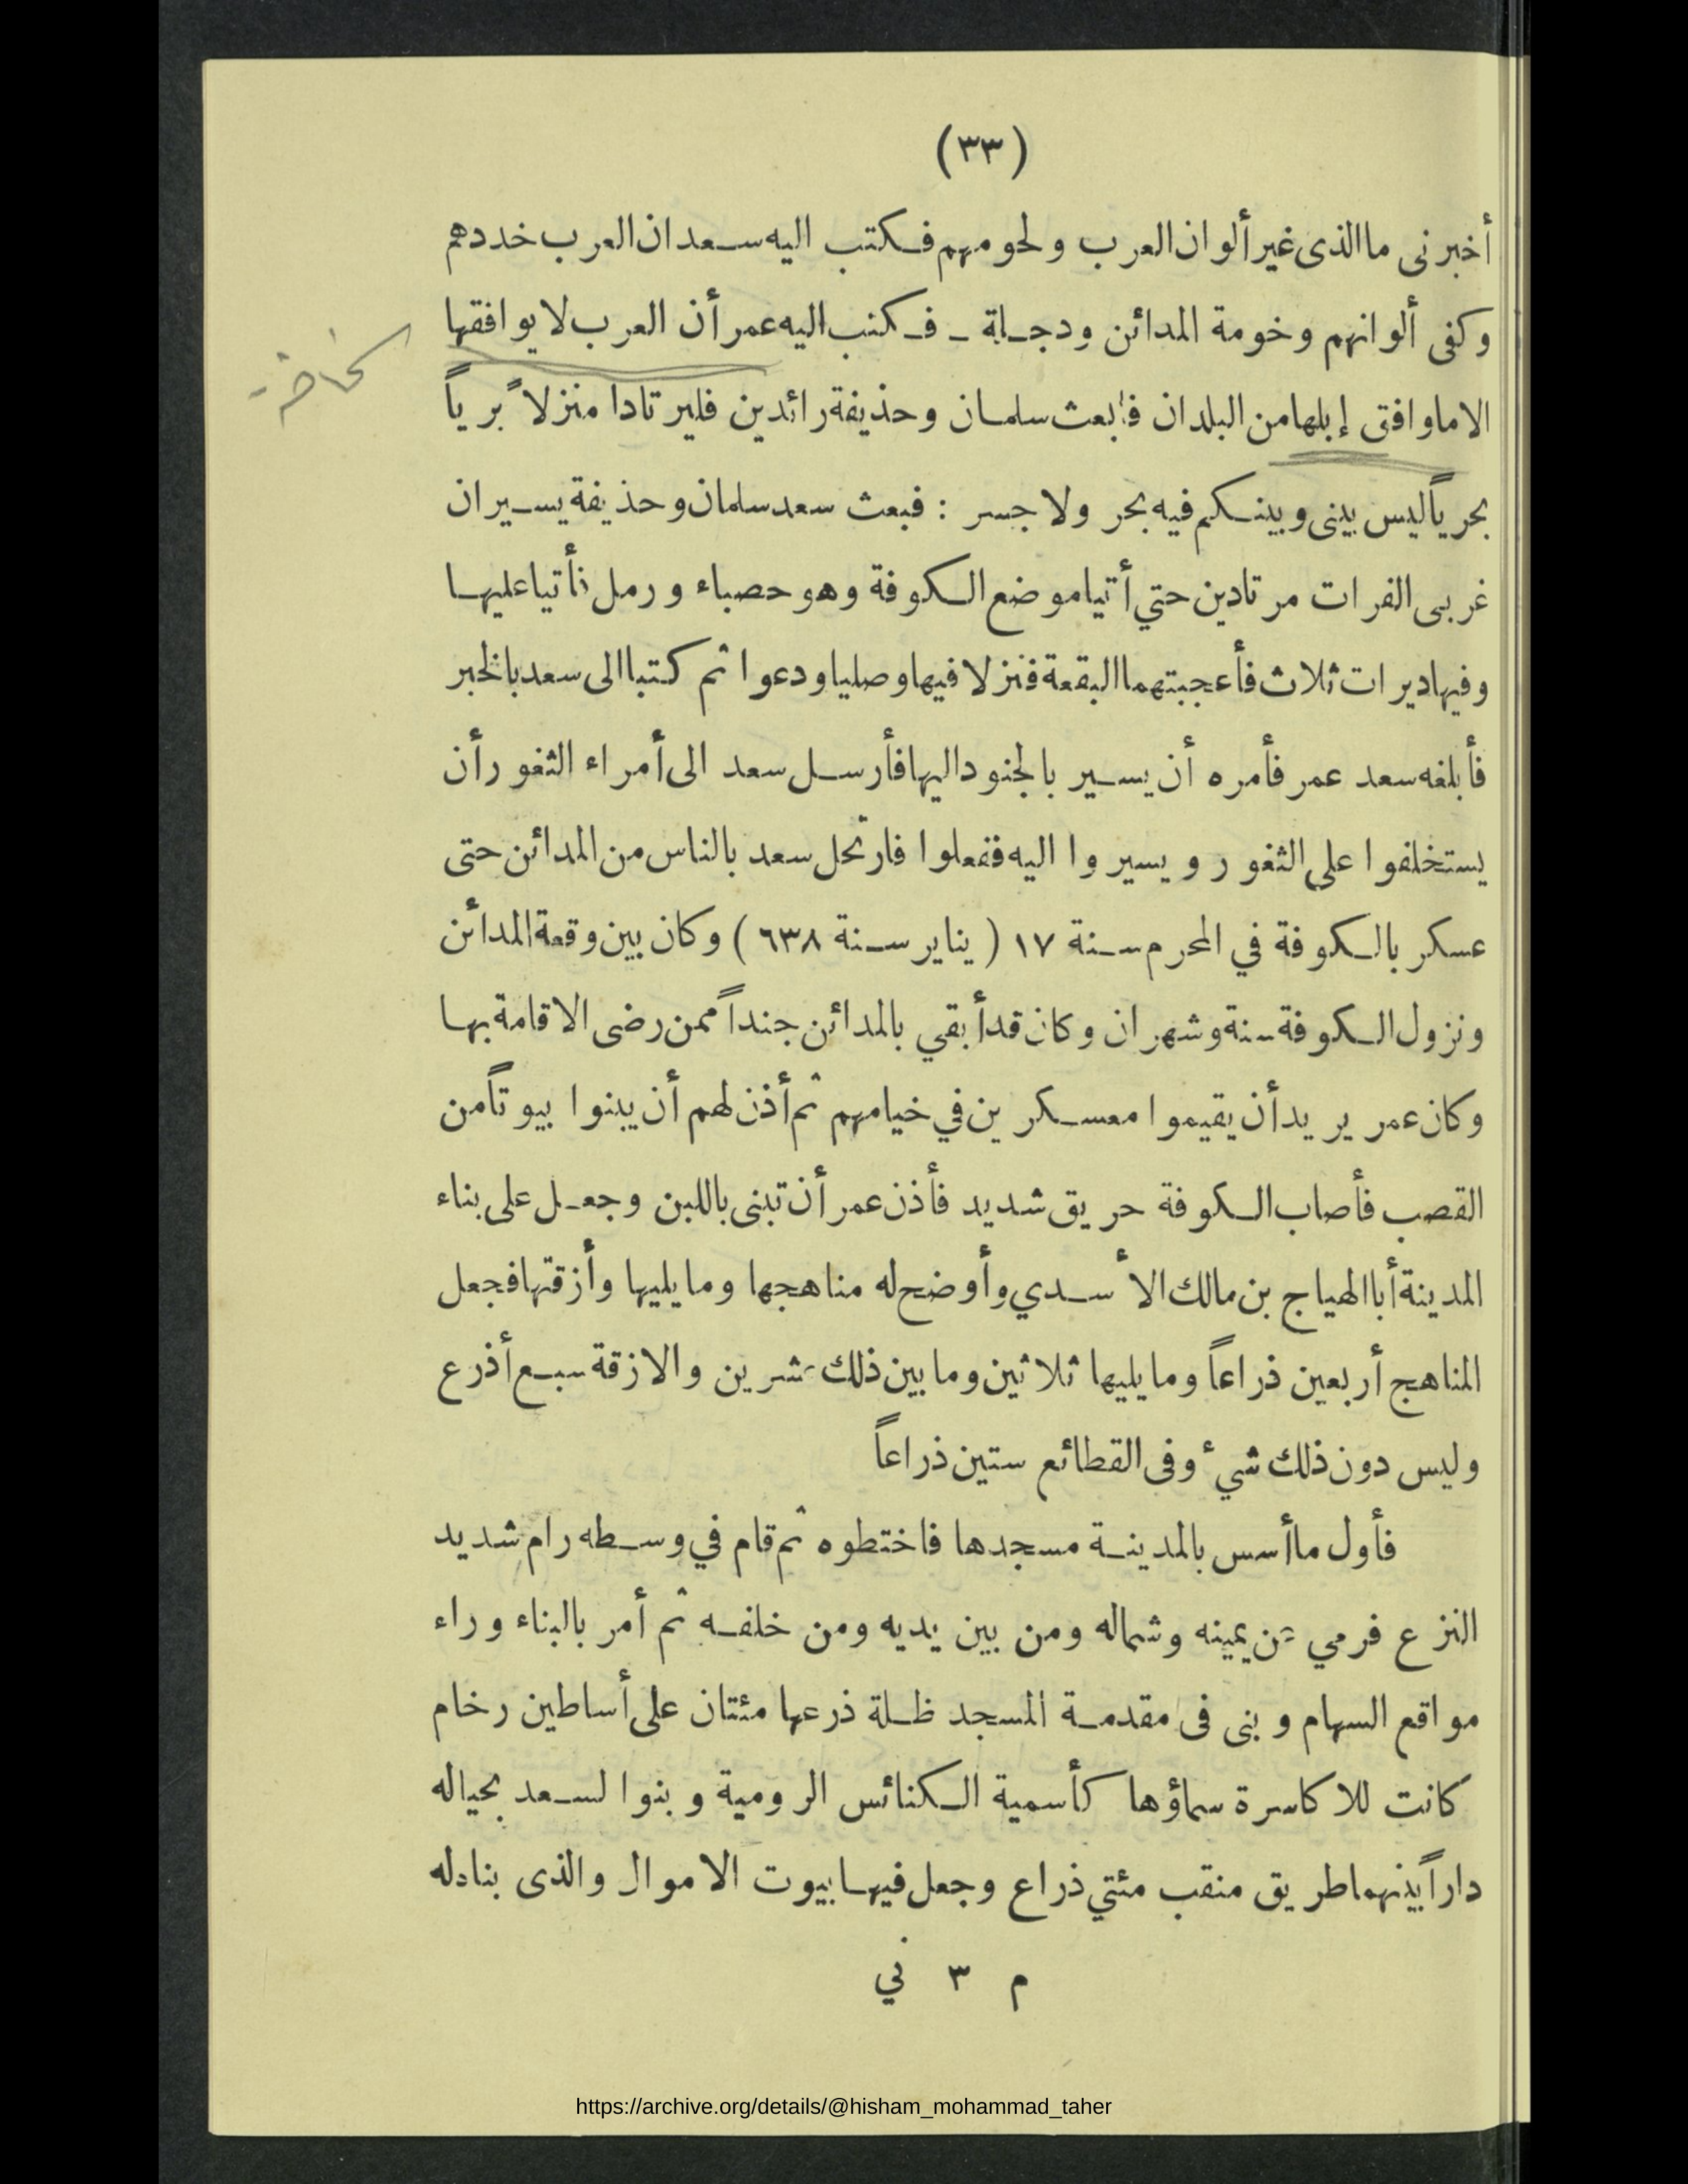 (٣٣)
أخبرنى ما الذى غير ألوان العرب ولحومهم فكتب اليه سعد ان العرب خددهم
وكفى ألوانهم وخومة المدائن ودجلة ـ فكتب اليه عمر أن العرب لا يوافقها
الا ما وافق إبلها من البلدان فابعث سلمان وحذيفة رائدين فليرتادا منزلاً برياً
بحرياً ليس بينى وبينكم فيه بحر ولا جسر : فبعث سعد سلمان وحذيفة يسيران
غربى الفرات مرتادين حتي أتيا موضع الكوفة وهو حصباء ورمل فأتيا عليها
وفيها ديرات ثلاث فأعجبتهما البقعة فنزلا فيها وصليا ودعوا ثم كتبا الى سعد بالخبر
فأبلغه سعد عمر فأمره أن يسير بالجنود اليها فأرسل سعد الى أمراء الثغور أن
يستخلفوا على الثغور ويسيروا اليه ففعلوا فارتحل سعد بالناس من المدائن حتى
عسكر بالكوفة في المحرم سنة ١٧ ( يناير سنة ٦٣٨ ) وكان بين وقعة المدائن
ونزول الكوفة سنة وشهران وكان قد أبقي بالمدائن جنداً ممن رضى الاقامة بها
وكان عمر يريد أن يقيموا معسكرين في خيامهم ثم أذن لهم أن يبنوا بيوتاً من
القصب فأصاب الكوفة حريق شديد فأذن عمر أن تبنى باللبن وجعل على بناء
المدينة أبا الهياج بن مالك الأسدي وأوضح له مناهجها وما يليها وأزقتها فجعل
المناهج أربعين ذراعاً وما يليها ثلاثين وما بين ذلك عشرين والازقة سبع أذرع
وليس دون ذلك شيء وفى القطائع ستين ذراعاً
فأول ما أسس بالمدينة مسجدها فاختطوه ثم قام في وسطه رام شديد
النزع فرمي عن يمينه وشماله ومن بين يديه ومن خلفه ثم أمر بالبناء وراء
مواقع السهام وبنى فى مقدمة المسجد ظلة ذرعها مئتان على أساطين رخام
كانت للاكاسرة سماؤها كأسمية الكنائس الرومية وبنوا لسعد بحياله
داراً بينهما طريق منقب مئتي ذراع وجعل فيها بيوت الاموال والذى بنا دله
م ٣ ني
https://archive.org/details/@hisham_mohammad_taher